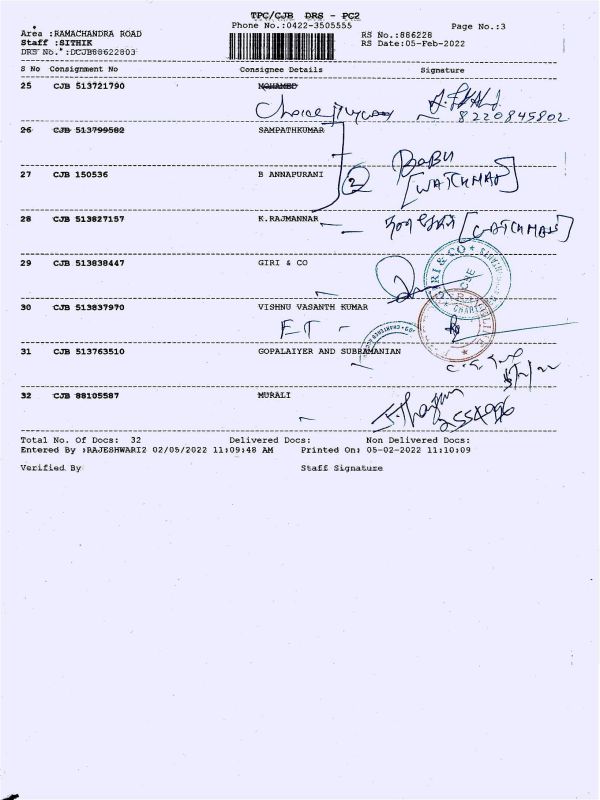 TPC/CJB DRS - PC2
Area :RAMACHANDRA ROAD Phone No.:0422-3505555 Page No.:3
Staff :SITHIK RS No.:886228
DRS No. :DCJB88622803 RS Date:05-Feb-2022
S No Consignment No Consignee Details Signature
25 CJB 513721790 MOHAMED
Choice
8220845802
26 CJB 513799582 SAMPATHKUMAR
BABU
27 CJB 150536 B ANNAPURANI 2 [WATCHMAN]
28 CJB 513827157 K.RAJMANNAR [WATCHMAN]
29 CJB 513838447 GIRI & CO
GIRI & CO
30 CJB 513837970 VISHNU VASANTH KUMAR
31 CJB 513763510 GOPALAIYER AND SUBRAMANIAN
32 CJB 88105587 MURALI
Total No. Of Docs: 32 Delivered Docs: Non Delivered Docs:
Entered By :RAJESHWARI2 02/05/2022 11:09:48 AM Printed On: 05-02-2022 11:10:09
Verified By Staff Signature